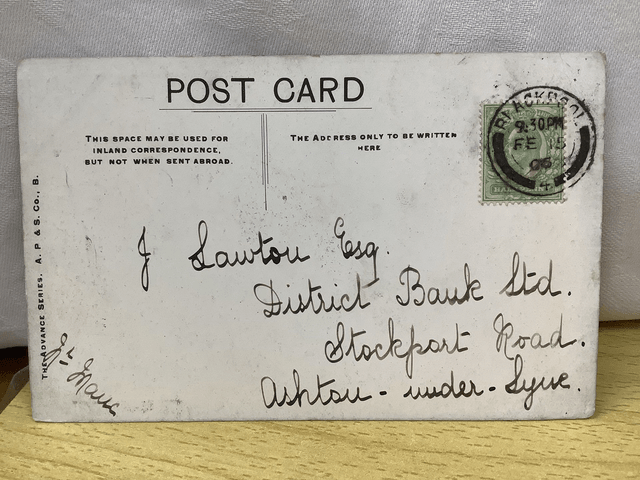 POST CARD
THIS SPACE MAY BE USED FOR
INLAND CORRESPONDENCE,
BUT NOT WHEN SENT ABROAD.
THE ADDRESS ONLY TO BE WRITTEN
HERE
BLACKPOOL
9.30PM
FE 15
06
4
J Lawton Esq.
District Bank Ltd.
Stockport Road.
Ashton-under-Lyne.
THE ADVANCE SERIES. A. P & S. CO., B.